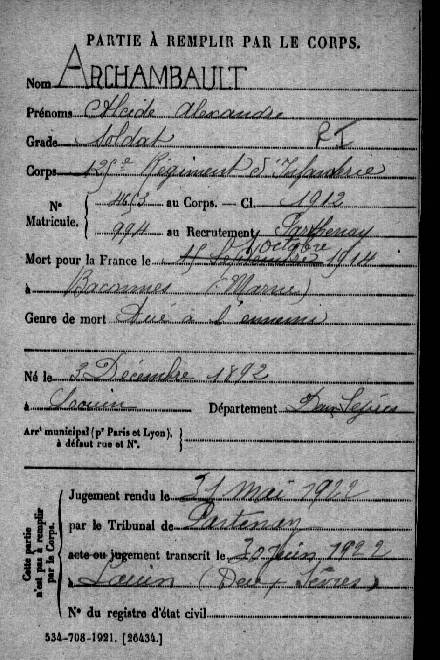 PARTIE À REMPLIR PAR LE CORPS.
Nom ARCHAMBAULT
Prénoms Alcide Alexandre
Grade Soldat RI
Corps 125e Régiment d'Infanterie
N° Matricule. 4653 au Corps. — Cl. 1912
994 au Recrutement Parthenay
1 octobre
Mort pour la France le 15 Septembre 1914
à Baconnes (Marne)
Genre de mort Tué à l'ennemi
Né le 3 Décembre 1892
à Louin Département Deux Sèvres
Arrt municipal (pr Paris et Lyon), à défaut rue et N°.
Cette partie n'est pas à remplir par le Corps.
Jugement rendu le 31 mai 1922
par le Tribunal de Partenay
acte ou jugement transcrit le 20 juin 1922
à Louin (Deux Sèvres)
N° du registre d'état civil
534-708-1921. [26434.]